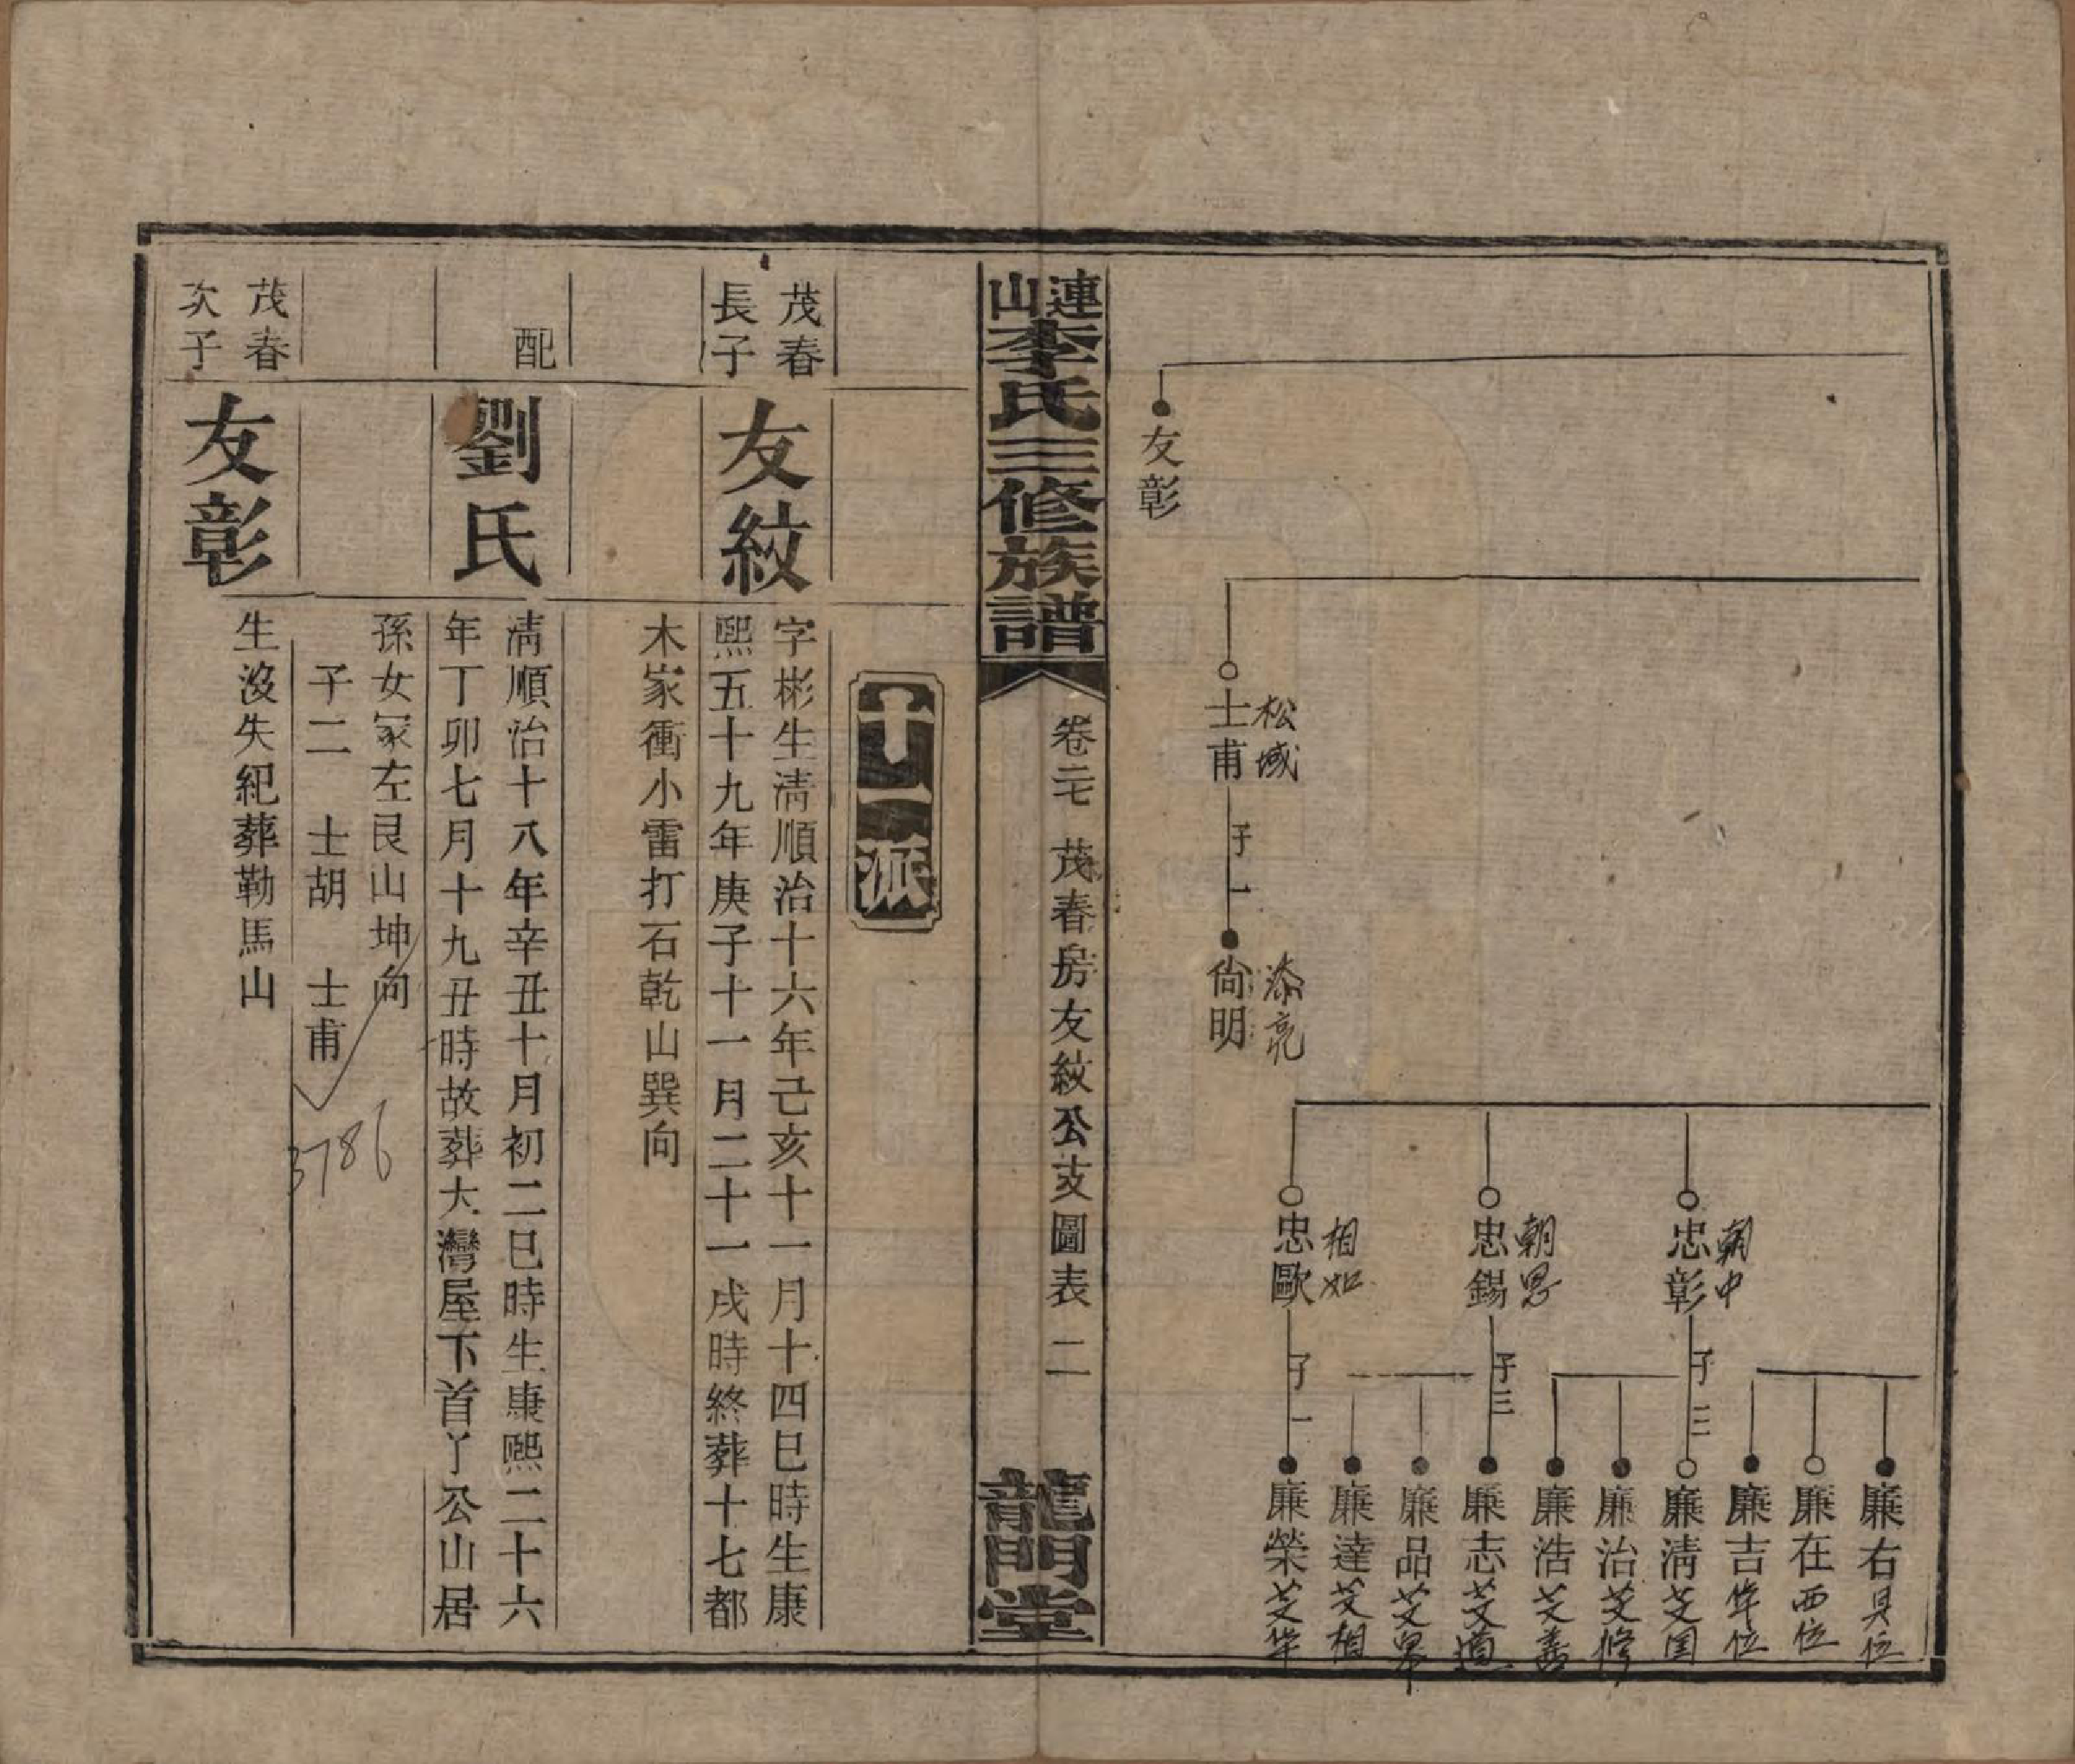 友彰
士甫
松域
子一
尙明
添亮
忠彰
朝中
子三
忠錫
朝恩
子三
忠歐
相如
子一
廉右
廉在西位
廉吉
廉淸
廉治艾修
廉浩艾善
廉志艾道
廉品
廉達艾相
廉榮艾华
連山李氏三修族譜
卷二七 茂春房友紋公支圖表 二
龍門堂
十一派
茂春
長子
友紋
字彬生淸順治十六年己亥十一月十四巳時生康
熙五十九年庚子十一月二十一戌時終葬十七都
木家衝小雷打石乾山巽向
配
劉氏
淸順治十八年辛丑十月初二巳時生康熙二十六
年丁卯七月十九丑時故葬大灣屋下首丫公山居
孫女冢左艮山坤向
子二 士胡 士甫
3786
茂春
次子
友彰
生沒失紀葬勒馬山